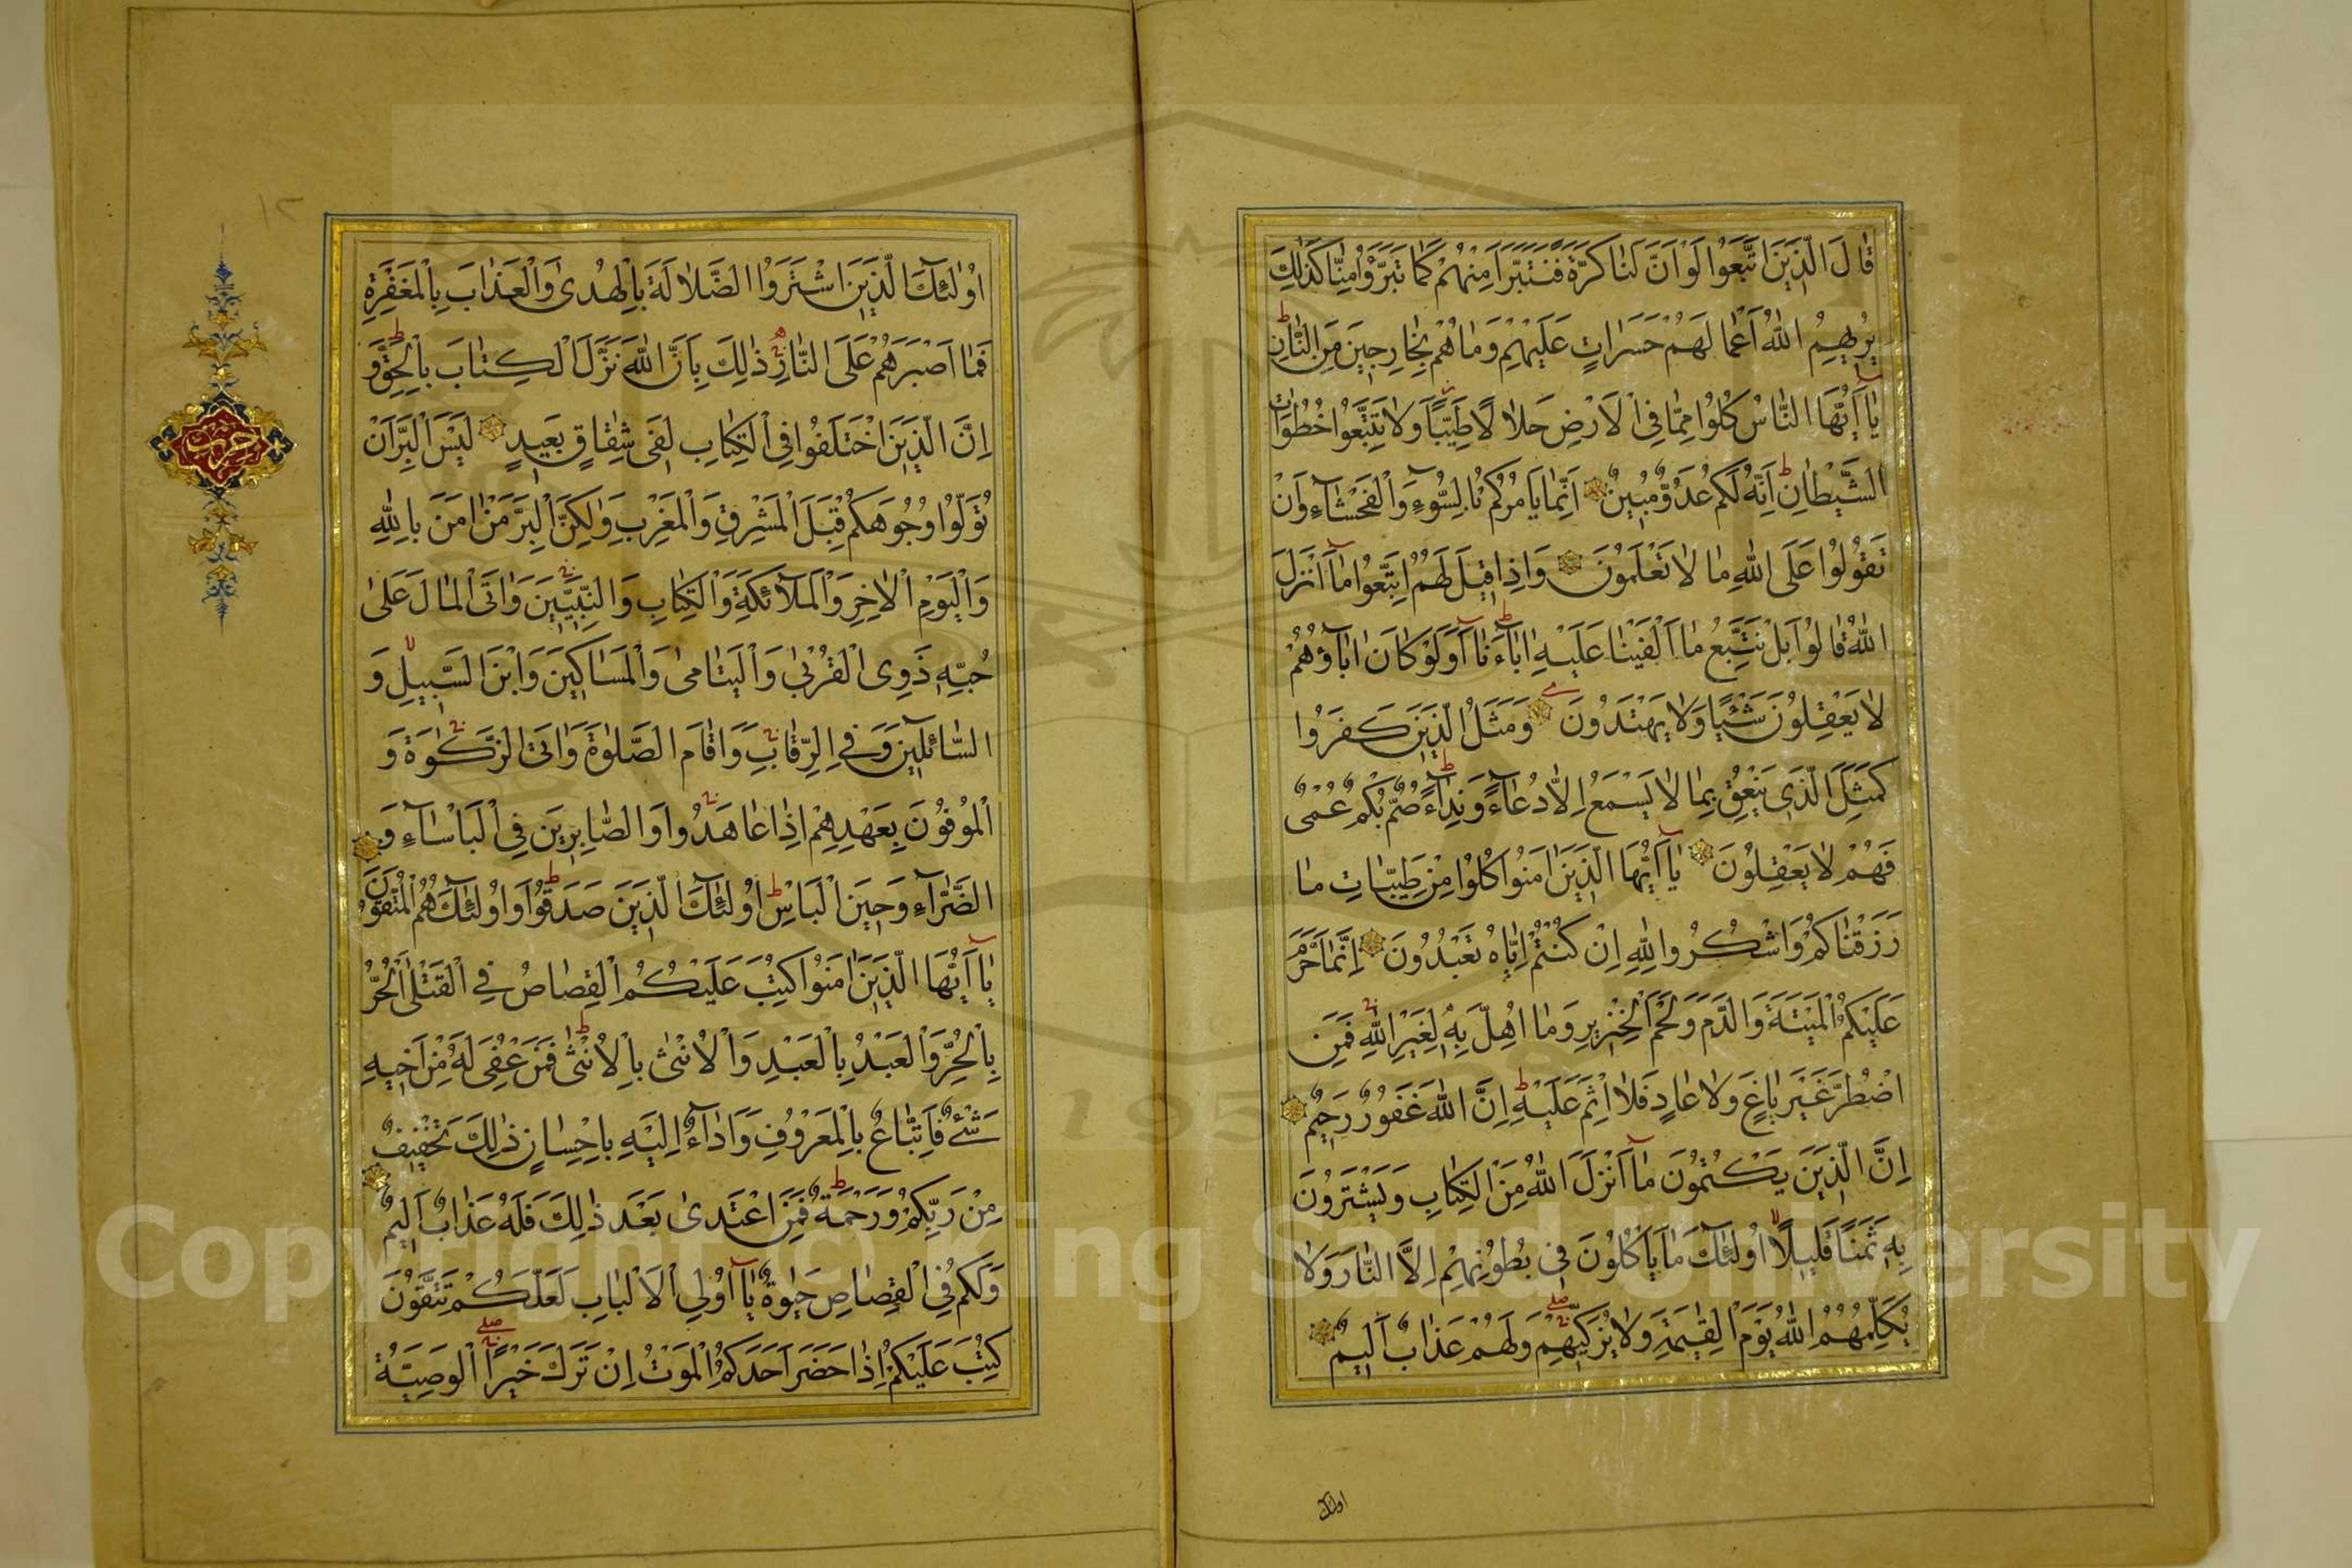 قَالَ الَّذِينَ اتَّبَعُوا لَوْ أَنَّ لَنَا كَرَّةً فَنَتَبَرَّأَ مِنْهُمْ كَمَا تَبَرَّؤُا مِنَّا كَذٰلِكَ
يُرِيهِمُ اللّٰهُ أَعْمَالَهُمْ حَسَرَاتٍ عَلَيْهِمْ وَمَا هُمْ بِخَارِجِينَ مِنَ النَّارِ
يَا أَيُّهَا النَّاسُ كُلُوا مِمَّا فِي الْأَرْضِ حَلَالًا طَيِّبًا وَلَا تَتَّبِعُوا خُطُوَاتِ
الشَّيْطَانِ إِنَّهُ لَكُمْ عَدُوٌّ مُبِينٌ إِنَّمَا يَأْمُرُكُمْ بِالسُّوءِ وَالْفَحْشَاءِ وَأَنْ
تَقُولُوا عَلَى اللّٰهِ مَا لَا تَعْلَمُونَ وَإِذَا قِيلَ لَهُمُ اتَّبِعُوا مَا أَنْزَلَ
اللّٰهُ قَالُوا بَلْ نَتَّبِعُ مَا أَلْفَيْنَا عَلَيْهِ اٰبَاءَنَا أَوَلَوْ كَانَ اٰبَاؤُهُمْ
لَا يَعْقِلُونَ شَيْئًا وَلَا يَهْتَدُونَ وَمَثَلُ الَّذِينَ كَفَرُوا
كَمَثَلِ الَّذِي يَنْعِقُ بِمَا لَا يَسْمَعُ إِلَّا دُعَاءً وَنِدَاءً صُمٌّ بُكْمٌ عُمْيٌ
فَهُمْ لَا يَعْقِلُونَ يَا أَيُّهَا الَّذِينَ اٰمَنُوا كُلُوا مِنْ طَيِّبَاتِ مَا
رَزَقْنَاكُمْ وَاشْكُرُوا لِلّٰهِ إِنْ كُنْتُمْ إِيَّاهُ تَعْبُدُونَ إِنَّمَا حَرَّمَ
عَلَيْكُمُ الْمَيْتَةَ وَالدَّمَ وَلَحْمَ الْخِنْزِيرِ وَمَا أُهِلَّ بِهِ لِغَيْرِ اللّٰهِ فَمَنِ
اضْطُرَّ غَيْرَ بَاغٍ وَلَا عَادٍ فَلَا إِثْمَ عَلَيْهِ إِنَّ اللّٰهَ غَفُورٌ رَحِيمٌ
إِنَّ الَّذِينَ يَكْتُمُونَ مَا أَنْزَلَ اللّٰهُ مِنَ الْكِتَابِ وَيَشْتَرُونَ
بِهِ ثَمَنًا قَلِيلًا أُولٰئِكَ مَا يَأْكُلُونَ فِي بُطُونِهِمْ إِلَّا النَّارَ وَلَا
يُكَلِّمُهُمُ اللّٰهُ يَوْمَ الْقِيٰمَةِ وَلَا يُزَكِّيهِمْ وَلَهُمْ عَذَابٌ أَلِيمٌ
اولئك
١٢
حزب
أُولٰئِكَ الَّذِينَ اشْتَرَوُا الضَّلَالَةَ بِالْهُدٰى وَالْعَذَابَ بِالْمَغْفِرَةِ
فَمَا أَصْبَرَهُمْ عَلَى النَّارِ ذٰلِكَ بِأَنَّ اللّٰهَ نَزَّلَ الْكِتَابَ بِالْحَقِّ وَ
إِنَّ الَّذِينَ اخْتَلَفُوا فِي الْكِتَابِ لَفِي شِقَاقٍ بَعِيدٍ لَيْسَ الْبِرَّ أَنْ
تُوَلُّوا وُجُوهَكُمْ قِبَلَ الْمَشْرِقِ وَالْمَغْرِبِ وَلٰكِنَّ الْبِرَّ مَنْ اٰمَنَ بِاللّٰهِ
وَالْيَوْمِ الْاٰخِرِ وَالْمَلَائِكَةِ وَالْكِتَابِ وَالنَّبِيِّينَ وَاٰتَى الْمَالَ عَلٰى
حُبِّهِ ذَوِي الْقُرْبٰى وَالْيَتَامٰى وَالْمَسَاكِينَ وَابْنَ السَّبِيلِ وَ
السَّائِلِينَ وَفِي الرِّقَابِ وَأَقَامَ الصَّلٰوةَ وَاٰتَى الزَّكٰوةَ وَ
الْمُوفُونَ بِعَهْدِهِمْ إِذَا عَاهَدُوا وَالصَّابِرِينَ فِي الْبَأْسَاءِ وَ
الضَّرَّاءِ وَحِينَ الْبَأْسِ أُولٰئِكَ الَّذِينَ صَدَقُوا وَأُولٰئِكَ هُمُ الْمُتَّقُونَ
يَا أَيُّهَا الَّذِينَ اٰمَنُوا كُتِبَ عَلَيْكُمُ الْقِصَاصُ فِي الْقَتْلَى الْحُرُّ
بِالْحُرِّ وَالْعَبْدُ بِالْعَبْدِ وَالْأُنْثٰى بِالْأُنْثٰى فَمَنْ عُفِيَ لَهُ مِنْ أَخِيهِ
شَيْءٌ فَاتِّبَاعٌ بِالْمَعْرُوفِ وَأَدَاءٌ إِلَيْهِ بِإِحْسَانٍ ذٰلِكَ تَخْفِيفٌ
مِنْ رَبِّكُمْ وَرَحْمَةٌ فَمَنِ اعْتَدٰى بَعْدَ ذٰلِكَ فَلَهُ عَذَابٌ أَلِيمٌ
وَلَكُمْ فِي الْقِصَاصِ حَيٰوةٌ يَا أُولِي الْأَلْبَابِ لَعَلَّكُمْ تَتَّقُونَ
كُتِبَ عَلَيْكُمْ إِذَا حَضَرَ أَحَدَكُمُ الْمَوْتُ إِنْ تَرَكَ خَيْرًا الْوَصِيَّةُ
Copyright © King Saud University